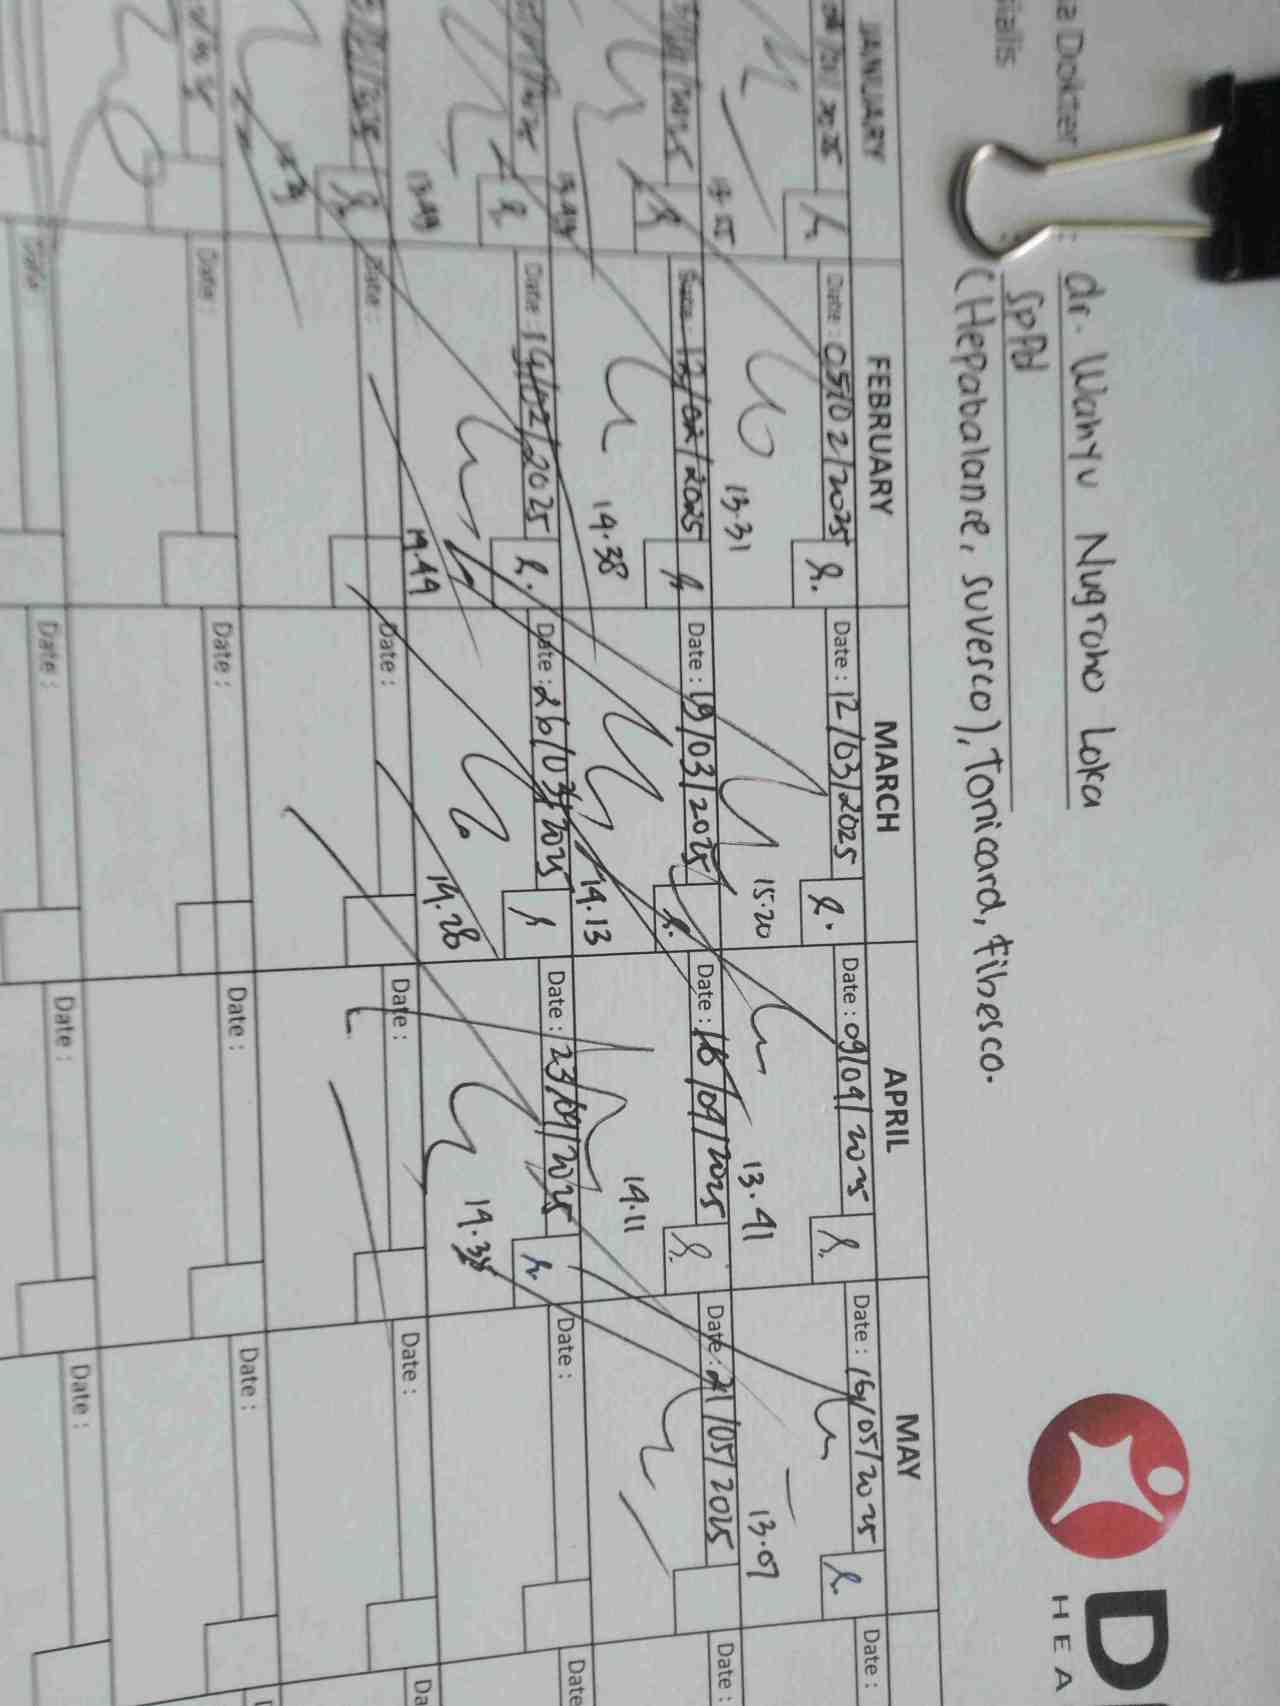 a Dokter : dr. Wahyu Nugroho Loka
ialis : SpPd
(Hepabalance, suvesco), Tonicard, fibesco.
HEA
JANUARY FEBRUARY MARCH APRIL MAY
Date : 05/02/2025 Date : 12/03/2025 Date : 09/04/2025 Date : 16/05/2025 Date :
13.31 15.20 13.41 13.07
Date : 19/03/2025 Date : 16/04/2025 Date : 21/05/2025 Date :
13.49 14.38 14.13 14.11
Date : 14/02/2025 Date : 26/03/2025 Date : 23/04/2025 Date : Date
13.49 14.49 14.28 14.38
Date : Date : Date : Date : Da
Date : Date : Date : Date :
Date : Date : Date : Date :